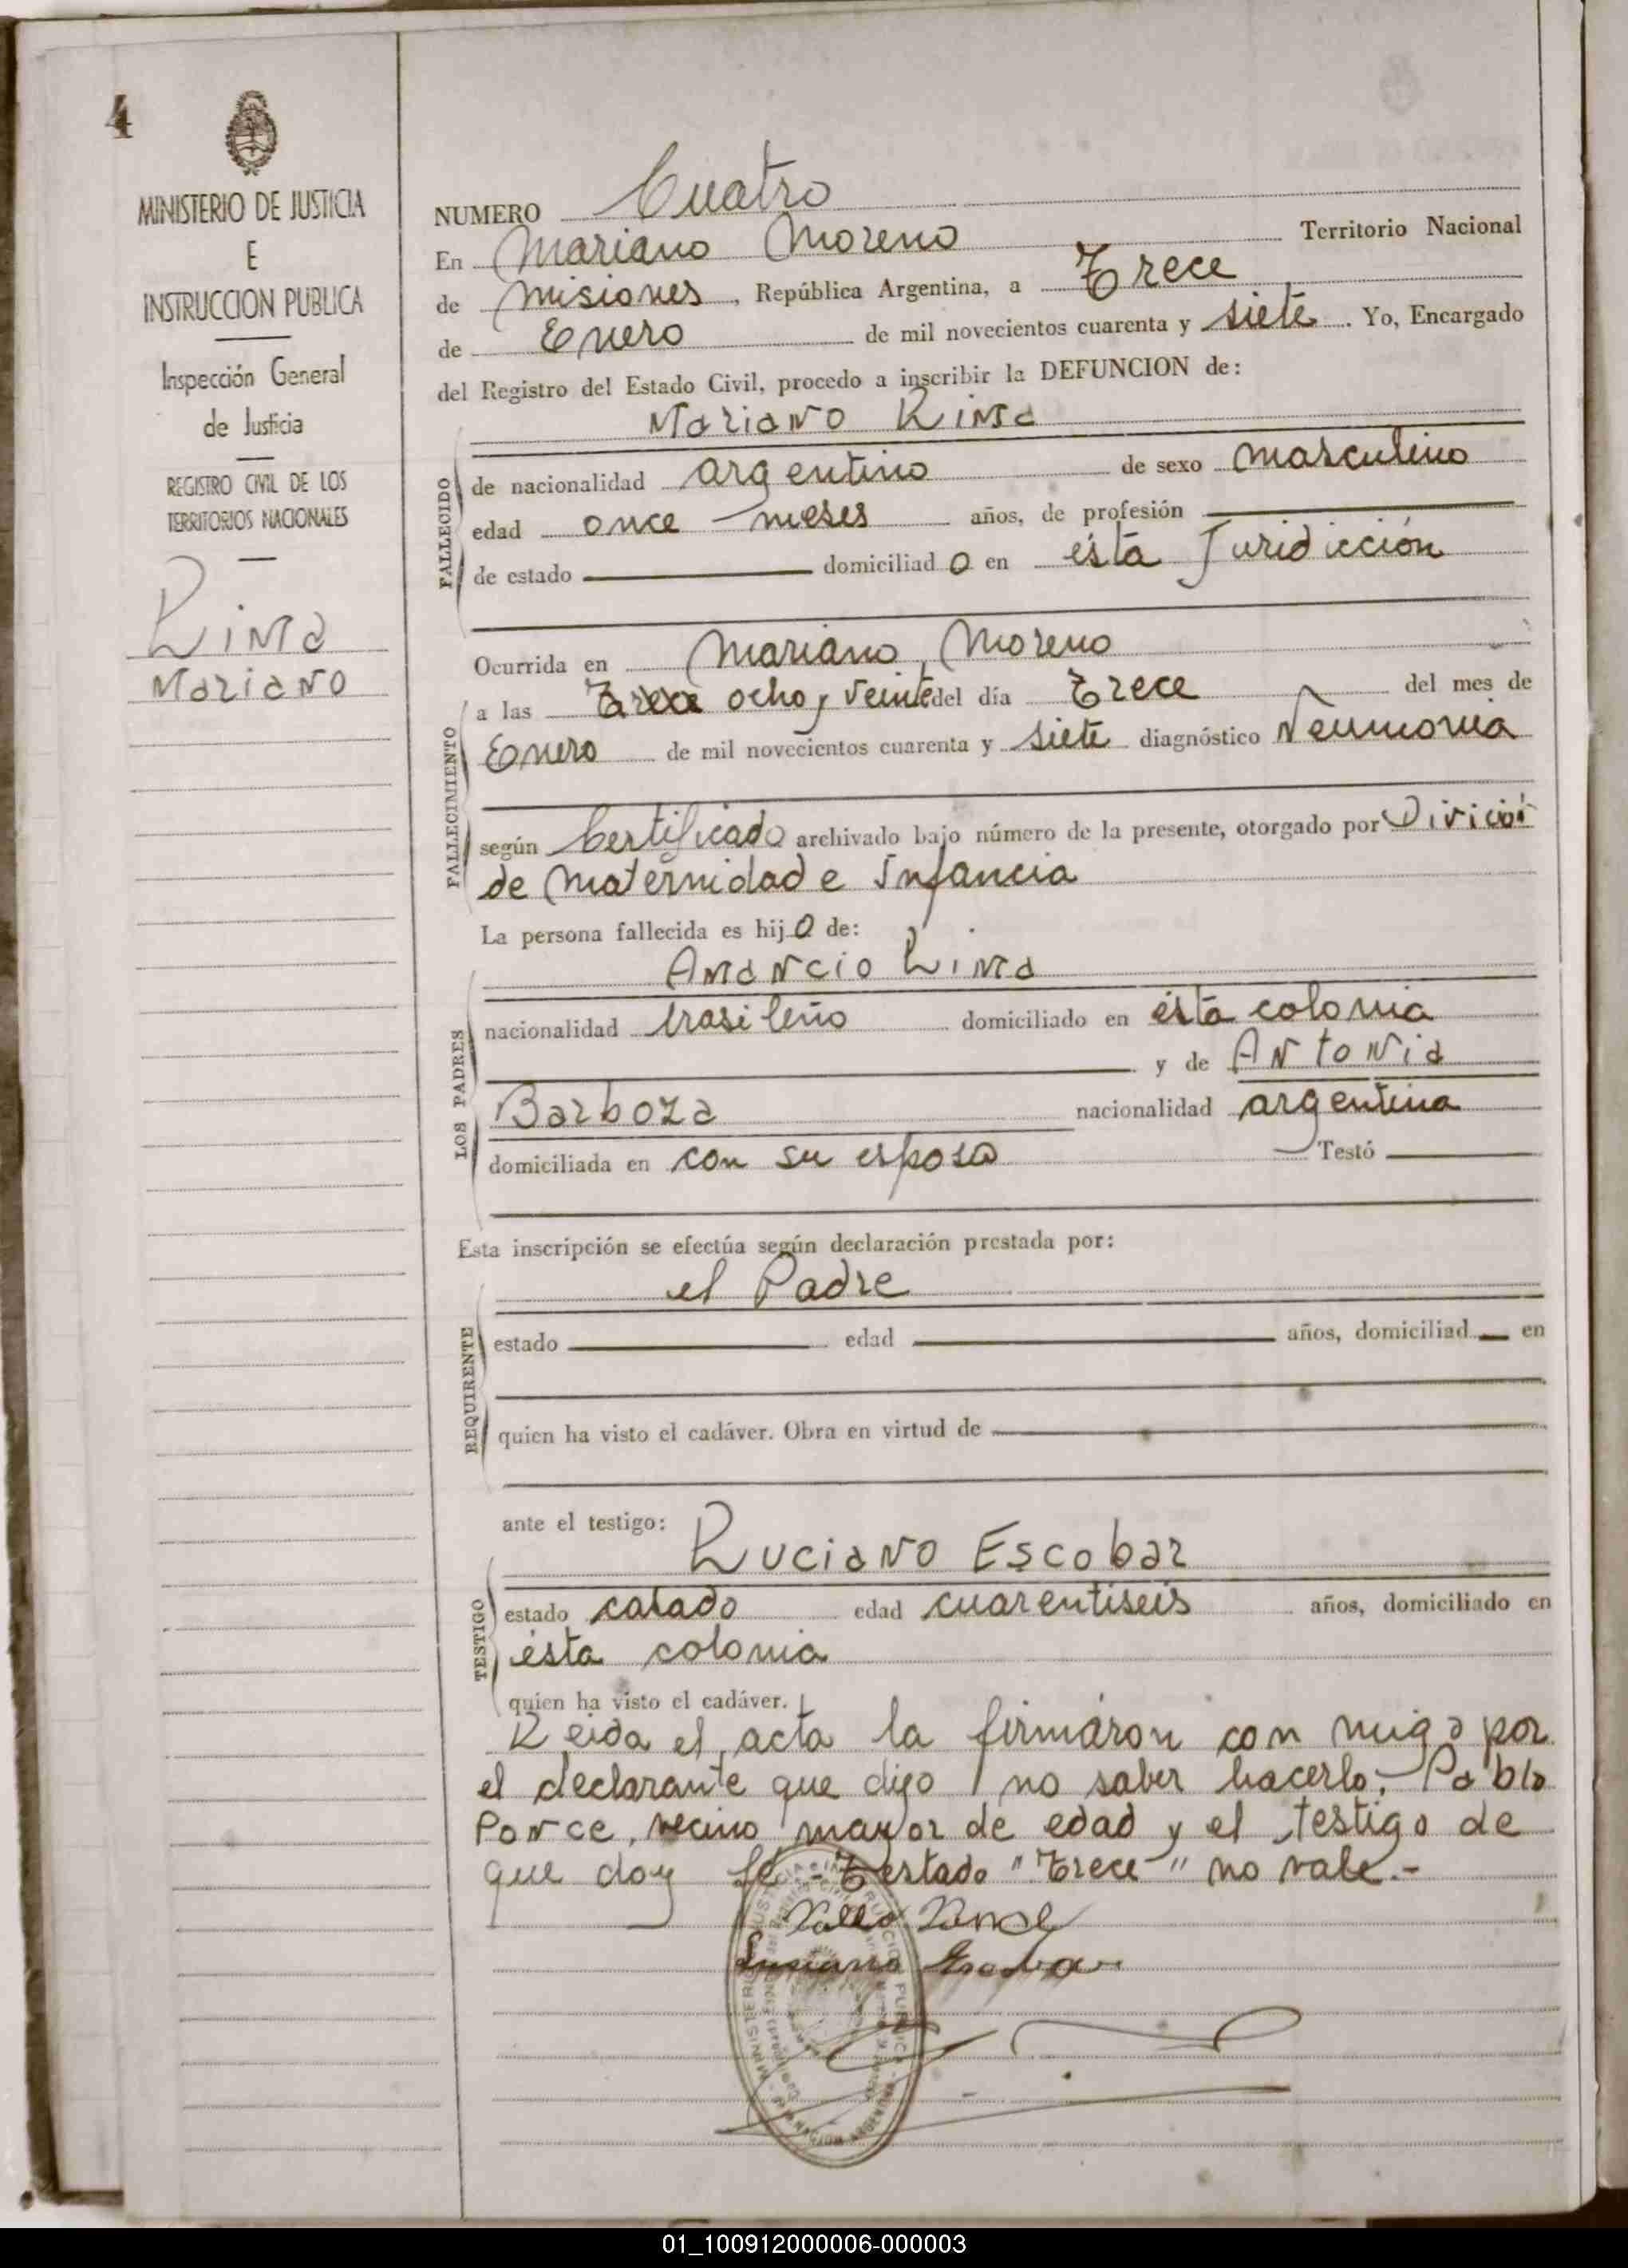 4
MINISTERIO DE JUSTICIA
E
INSTRUCCION PUBLICA
Inspección General
de Justicia
REGISTRO CIVIL DE LOS
TERRITORIOS NACIONALES
Lima
Mariano
NUMERO Cuatro
En Mariano Moreno Territorio Nacional
de Misiones, República Argentina, a Trece
de Enero de mil novecientos cuarenta y siete. Yo, Encargado
del Registro del Estado Civil, procedo a inscribir la DEFUNCION de:
Mariano Lima
FALLECIDO
de nacionalidad argentino de sexo masculino
edad once meses años, de profesión
de estado domiciliado en ésta Juridicción
Ocurrida en Mariano, Moreno
a las Trece ocho y veinte del día Trece del mes de
FALLECIMIENTO
Enero de mil novecientos cuarenta y siete diagnóstico Neumonia
según Certificado archivado bajo número de la presente, otorgado por Divición
de Maternidad e Infancia
La persona fallecida es hijo de:
Amancio Lima
LOS PADRES
nacionalidad brasileño domiciliado en ésta colonia
y de Antonia
Barboza nacionalidad argentina
domiciliada en con su esposo Testó
Esta inscripción se efectúa según declaración prestada por:
el Padre
REQUIRENTE
estado edad años, domiciliad en
quien ha visto el cadáver. Obra en virtud de
ante el testigo:
Luciano Escobar
TESTIGO
estado casado edad cuarentiseis años, domiciliado en
ésta colonia
quien ha visto el cadáver.
Leida el acta la firmáron con migo por
el declarante que dijo no saber hacerlo; Pablo
Ponce, vecino mayor de edad y el testigo de
que doy fé.- Testado "Trece" no vale.-
Pablo Ponce
Luciano Escobar
01_100912000006-000003